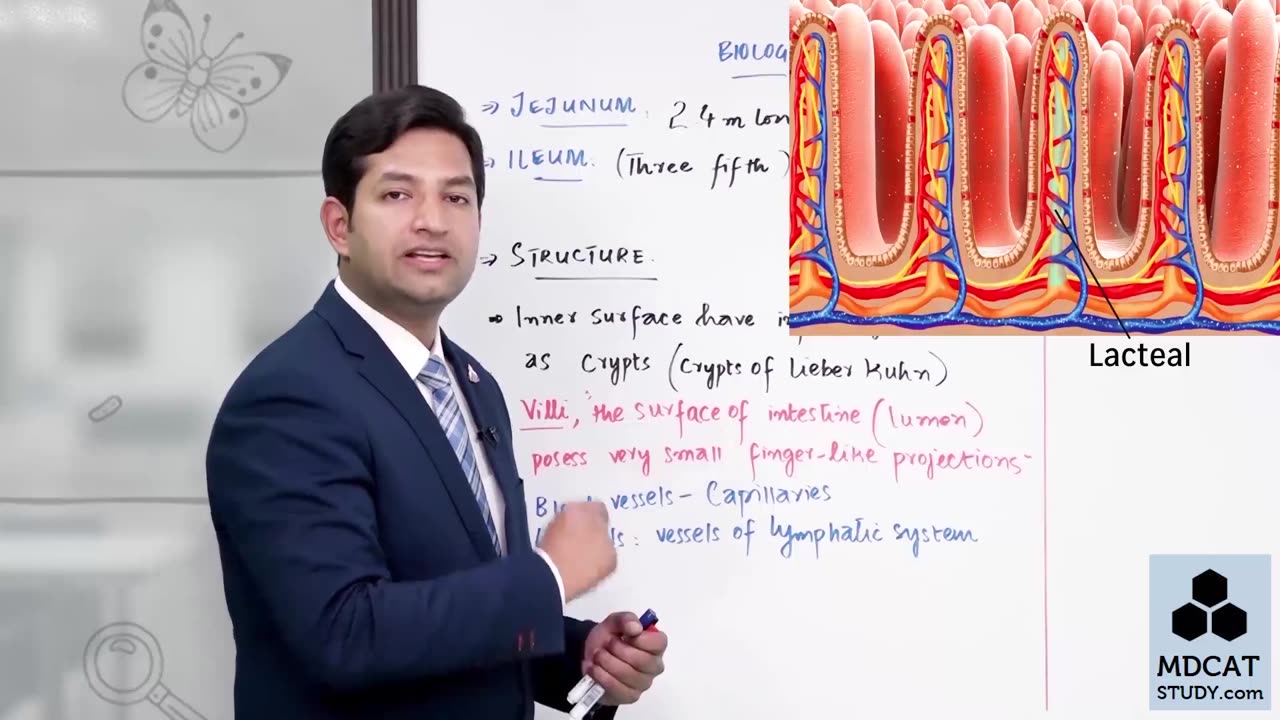 BIOLOG
⇒ JEJUNUM: 2 4 m lon
⇒ ILEUM. (Three fifth)
⇒ STRUCTURE.
Inner surface have
as Crypts (Crypts of Lieber Kuhn)
Villi, the surface of intestine (lumen)
posess very small finger-like projections-
vessels - Capillaries
: vessels of lymphatic system
Lacteal
MDCAT
STUDY.com